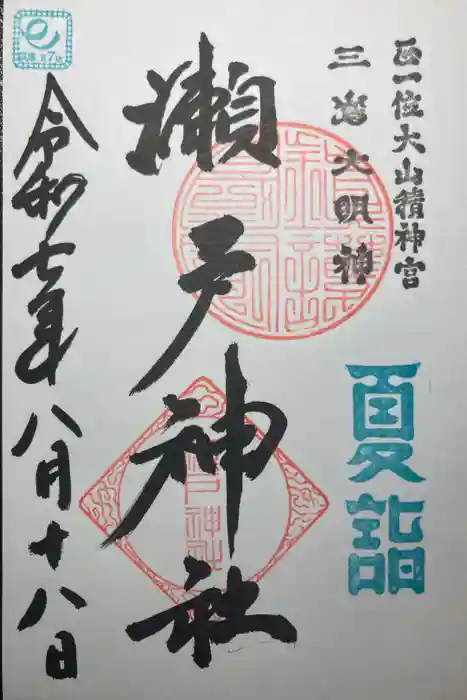 正一位大山積神宮
三嶌大明神
夏詣
瀬戸神社
令和七年八月十八日